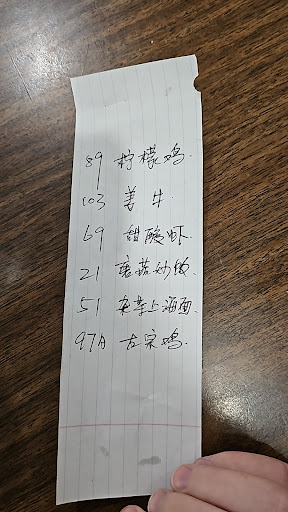 89 柠檬鸡.
103 姜牛.
69 甜酸虾.
21 蘑菇炒饭.
51 上海面.
97A 左宗鸡.